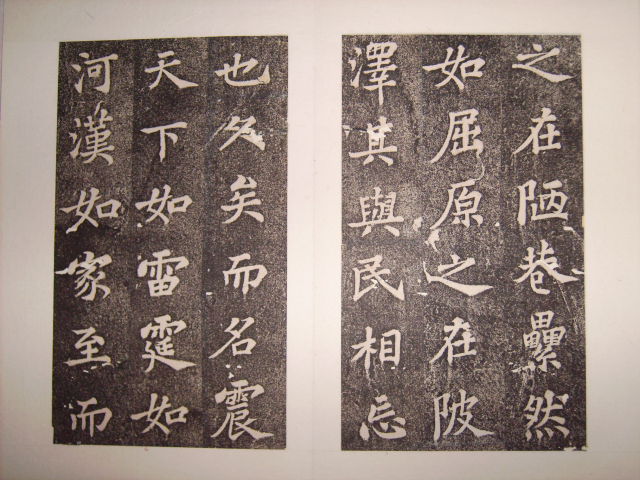 之在陋巷纍然
如屈原之在陂
澤其與民相忘
也久矣而名震
天下如雷霆如
河漢如家至而